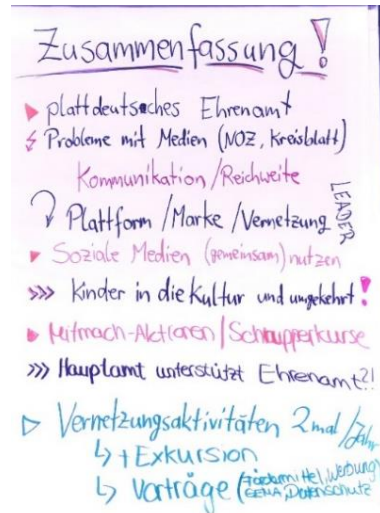 Zusammenfassung!
plattdeutsches Ehrenamt
Probleme mit Medien (NOZ, Kreisblatt)
Kommunikation/Reichweite
Plattform/Marke/Vernetzung
LEADER
Soziale Medien (gemeinsam) nutzen
>>> Kinder in die Kultur und umgekehrt!
Mitmach-Aktionen/Schnupperkurse
>>> Hauptamt unterstützt Ehrenamt?!
Vernetzungsaktivitäten 2mal/Jahr
+ Exkursion
Vorträge (Fördermittel, Werbung,
GEMA, Datenschutz